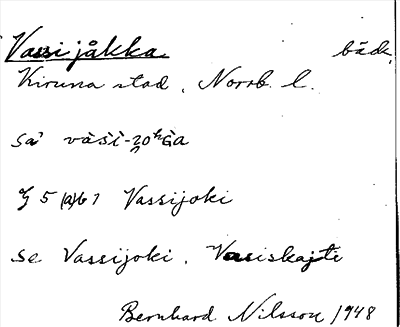 Vassijåkka bäck,
Kiruna stad, Norrb. l.
sa' vàsì-
G 5 (a) b 1 Vassijoki
se Vassijoki, Vassiskajti
Bernhard Nilsson 1948